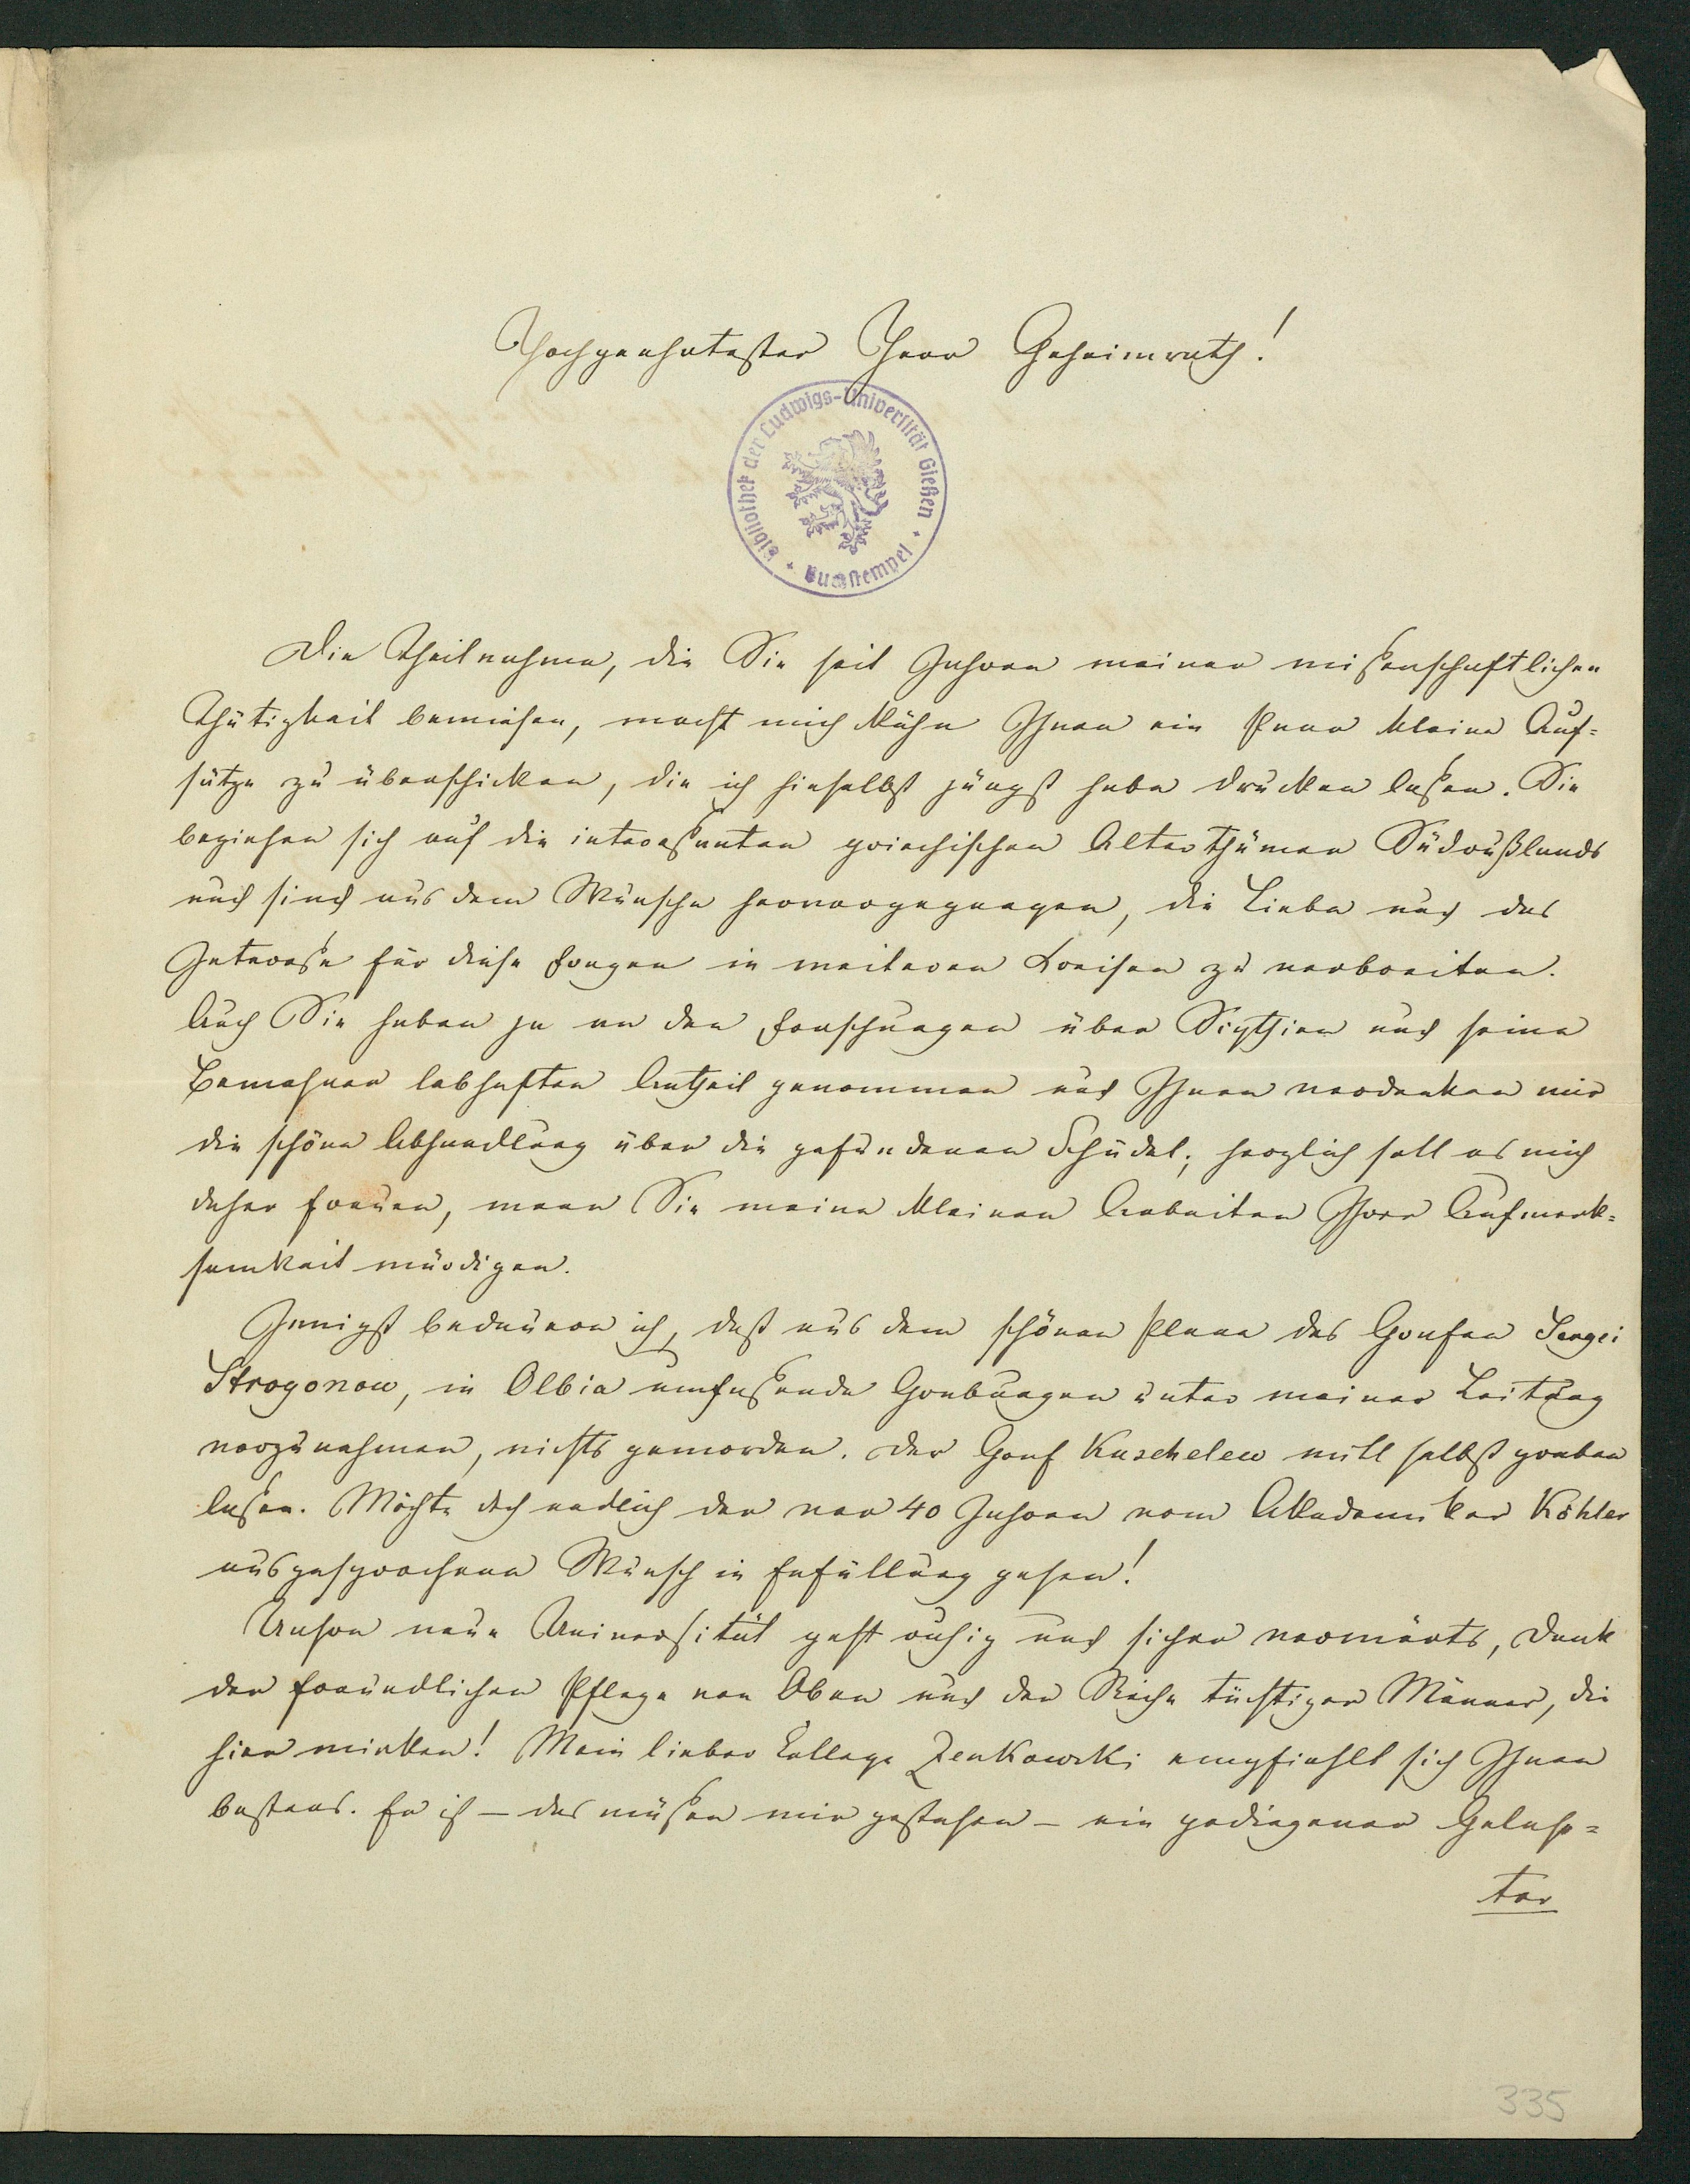 Hochgeehrtester Herr Geheimrath!
Bibliothek der Ludwigs-Universität Gießen
Buchstempel
Die Theilnahme, die Sie seit Jahren meiner wißenschaftlichen
Thätigkeit bewiesen, macht mich kühn Ihnen ein Paar kleine Auf-
sätze zu überschicken, die ich hieselbst jüngst habe drucken laßen. Sie
beziehen sich auf die intereßanten griechischen Alterthümer Südrußlands
und sind aus dem Wunsche hervorgegangen, die Liebe und das
Intereße für diese Fragen in weiteren Kreisen zu verbreiten.
Auch Sie haben ja an den Forschungen über Scythien und seine
Bewohner lebhaften Antheil genommen und Ihnen verdanken wir
die schöne Abhandlung über die gefundenen Schädel; herzlich soll es mich
daher freuen, wenn Sie meine kleinen Arbeiten Ihrer Aufmerk-
samkeit würdigen.
Innigst bedauere ich, daß aus dem schönen Plane des Grafen Sergei
Strogonow, in Olbia umfaßende Grabungen unter meiner Leitung
vorzunehmen, nichts geworden. Der Graf Kuschelew will selbst graben
laßen. Möchte doch endlich der vor 40 Jahren vom Akademiker Köhler
ausgesprochene Wunsch in Erfüllung gehen!
Unsere neue Universität geht ruhig und sicher vorwärts, Dank
der freundlichen Pflege von Oben und der Reihe tüchtiger Männer, die
hier wirken! Mein lieber College Zenkowski empfiehlt sich Ihnen
bestens. Er ist – das müßen wir gestehen – ein gediegener Gelehr-
ter
335